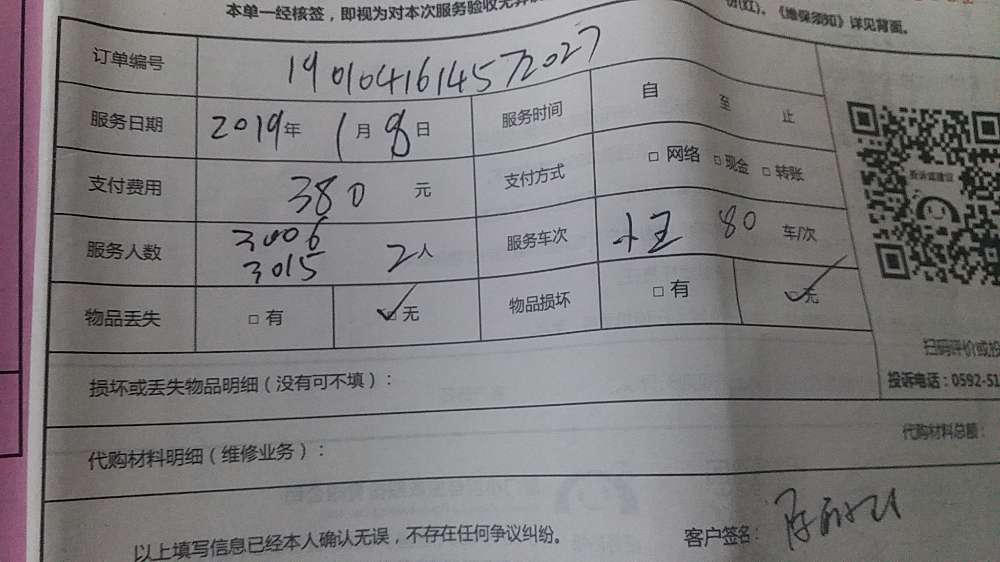 本单一经核签，即视为对本次服务验收无异议
份(红)。《维保须知》详见背面。
订单编号 1901041614572027
服务日期 2019年 1月8日 服务时间 自 至 止
支付费用 380 元 支付方式 □ 网络 □ 现金 □ 转账
服务人数 3006 3015 2人 服务车次 80 车/次
物品丢失 □ 有 □ 无 物品损坏 □ 有 □ 无
投诉或建议
扫码评价或投
损坏或丢失物品明细（没有可不填）：
投诉电话：0592-51
代购材料总额：
代购材料明细（维修业务）：
以上填写信息已经本人确认无误，不存在任何争议纠纷。
客户签名：